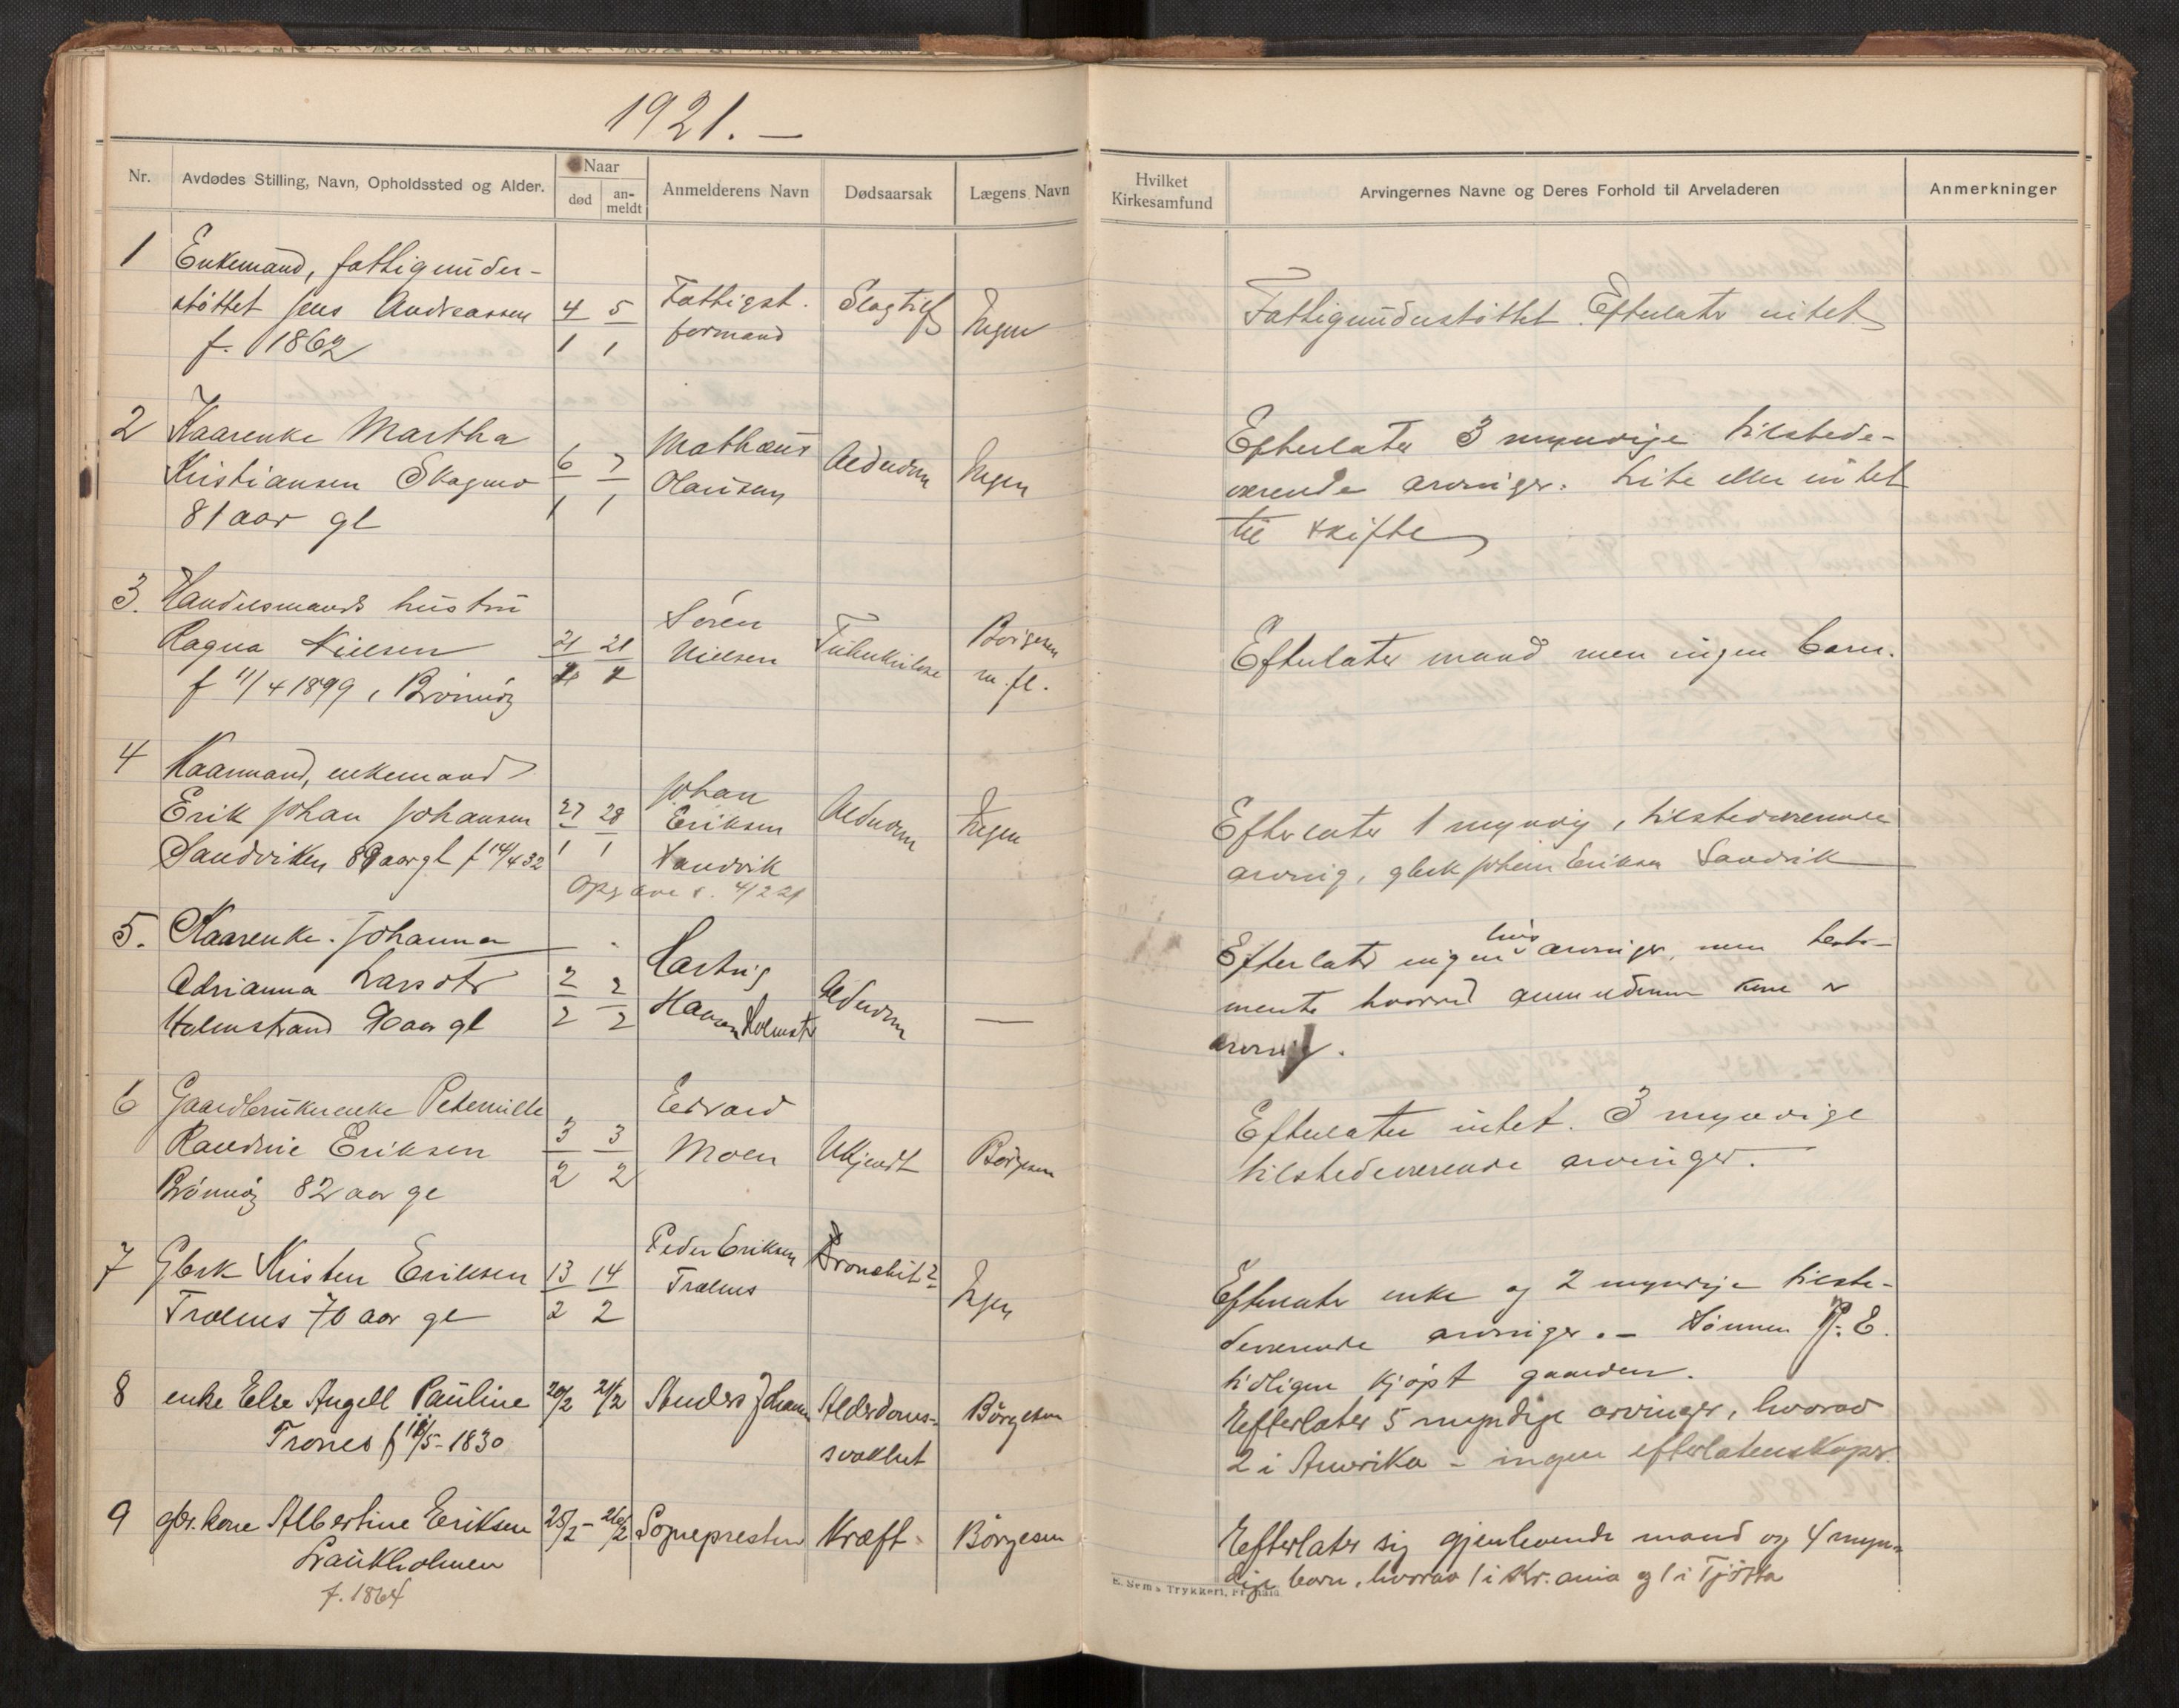 1921. —
Nr.
Avdødes Stilling, Navn, Opholdssted og Alder.
Naar
død
an-
meldt
Anmelderens Navn
Dødsaarsak
Lægens Navn
Hvilket
Kirkesamfund
Arvingernes Navne og Deres Forhold til Arveladeren
Anmerkninger
1 Enkemand, fattigunder-
støttet Jens Andreassen
f. 1862
4/1 5/1
Fattigst.
formand
Slagtilf
Ingen
Fattigunderstøttet. Efterlater intet
2 Kaarenke Martha
Kristiansen Skogmo
81 aar gl
6/1 7/1
Mathæus
Olausen
Alderdom
Ingen
Efterlater 3 myndige tilstede-
værende arvinger. Lite eller intet
til skifte
3. Handelsmands hustru
Ragna Nielsen
f 11/4 1899, Brønnøy
21 21
Søren
Nielsen
Tuberkulose
Børgesen
m. fl.
Efterlater mand men ingen barn.
4 Kaarmand, enkemand
Erik Johan Johansen
Sandviken 89 aar gl f 14/4 32
27/1 28/1
Johan
Eriksen
Sandvik
Alderdom
Ingen
Opgave s. 4/2 21
Efterlater 1 myndig, tilstedeværende
arving, gbrk Johan Eriksen Sandvik
5. Kaarenke Johanna
Adrianna Larsdtr
Holmstrand 90 aar gl
2/2 2/2
Hartvig
Hansen Holmstr
Alderdom
—
Efterlater ingen livsarvinger, men testa-
mente hvorved anmelderen er
arving.
6 Gaardbrukerenke Peternille
Randine Eriksen
Brønnøy 82 aar gl
3/2 3/2
Edvard
Moen
Ukjendt
Børgesen
Efterlater intet. 3 myndige
tilstedeværende arvinger.
7 Gbrk Kristen Eriksen
Trælnes 70 aar gl
13/2 14/2
Peder Eriksen
Trælnes
Bronchit?
Ingen
Efterlater enke og 2 myndige tilste-
deværende arvinger. — Sønnen P. E.
tidligere kjøpt gaarden.
8 enke Else Angell Pauline
Trones f 18/5-1830
20/2 21/2
Anders Johansen
Alderdoms-
svakhet
Børgesen
Efterlater 5 myndige arvinger, hvorav
2 i Amerika – ingen efterlatenskaper.
9 gbr. kone Albertine Eriksen
f. 1864
25/2 – 26/2
Sognepresten
Kræft
Børgesen
Efterlater sig gjenlevende mand og 4 myn-
dige barn, hvorav 1 i Kr.ania og 1 i Tjøtta
E. Sems Trykkeri, Fr.hald